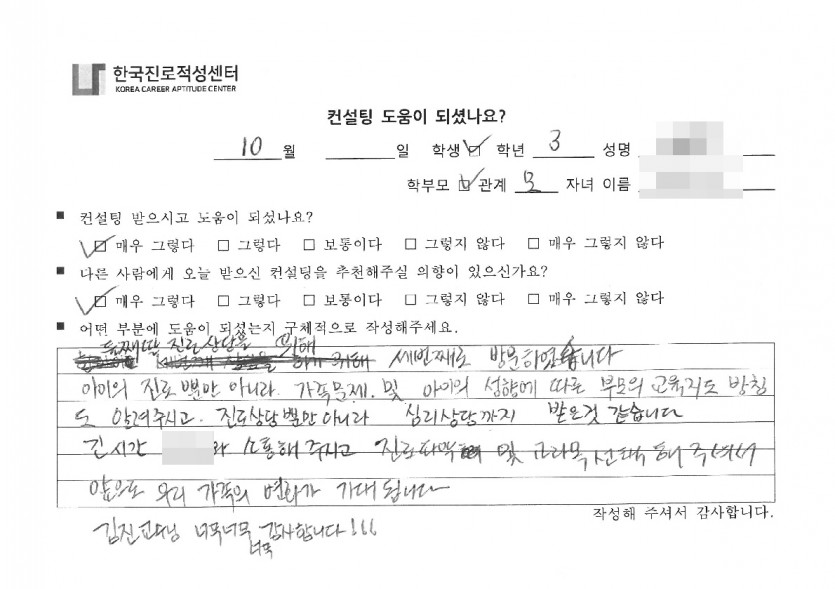 한국진로적성센터
KOREA CAREER APTITUDE CENTER
컨설팅 도움이 되셨나요?
10 월 일 학생 ☑ 학년 3 성명
학부모 ☑ 관계 모 자녀 이름
■ 컨설팅 받으시고 도움이 되셨나요?
☑ 매우 그렇다 □ 그렇다 □ 보통이다 □ 그렇지 않다 □ 매우 그렇지 않다
■ 다른 사람에게 오늘 받으신 컨설팅을 추천해주실 의향이 있으신가요?
☑ 매우 그렇다 □ 그렇다 □ 보통이다 □ 그렇지 않다 □ 매우 그렇지 않다
■ 어떤 부분에 도움이 되셨는지 구체적으로 작성해주세요.
둘째딸 진로상담을 위해
세번째로 방문하였습니다
아이의 진로뿐만 아니라. 가족문제. 및 아이의 성향에 따른 부모의 교육지도 방침
도 알려주시고. 진로상담뿐만아니라 심리상담까지 받은것 같습니다
긴시간 와 소통해주시고 진로파악 및 교과목 선택 통해 주셔서
앞으로 우리 가족의 변화가 기대됩니다
작성해 주셔서 감사합니다.
김진교대님 너무너무 감사합니다!!!
너무